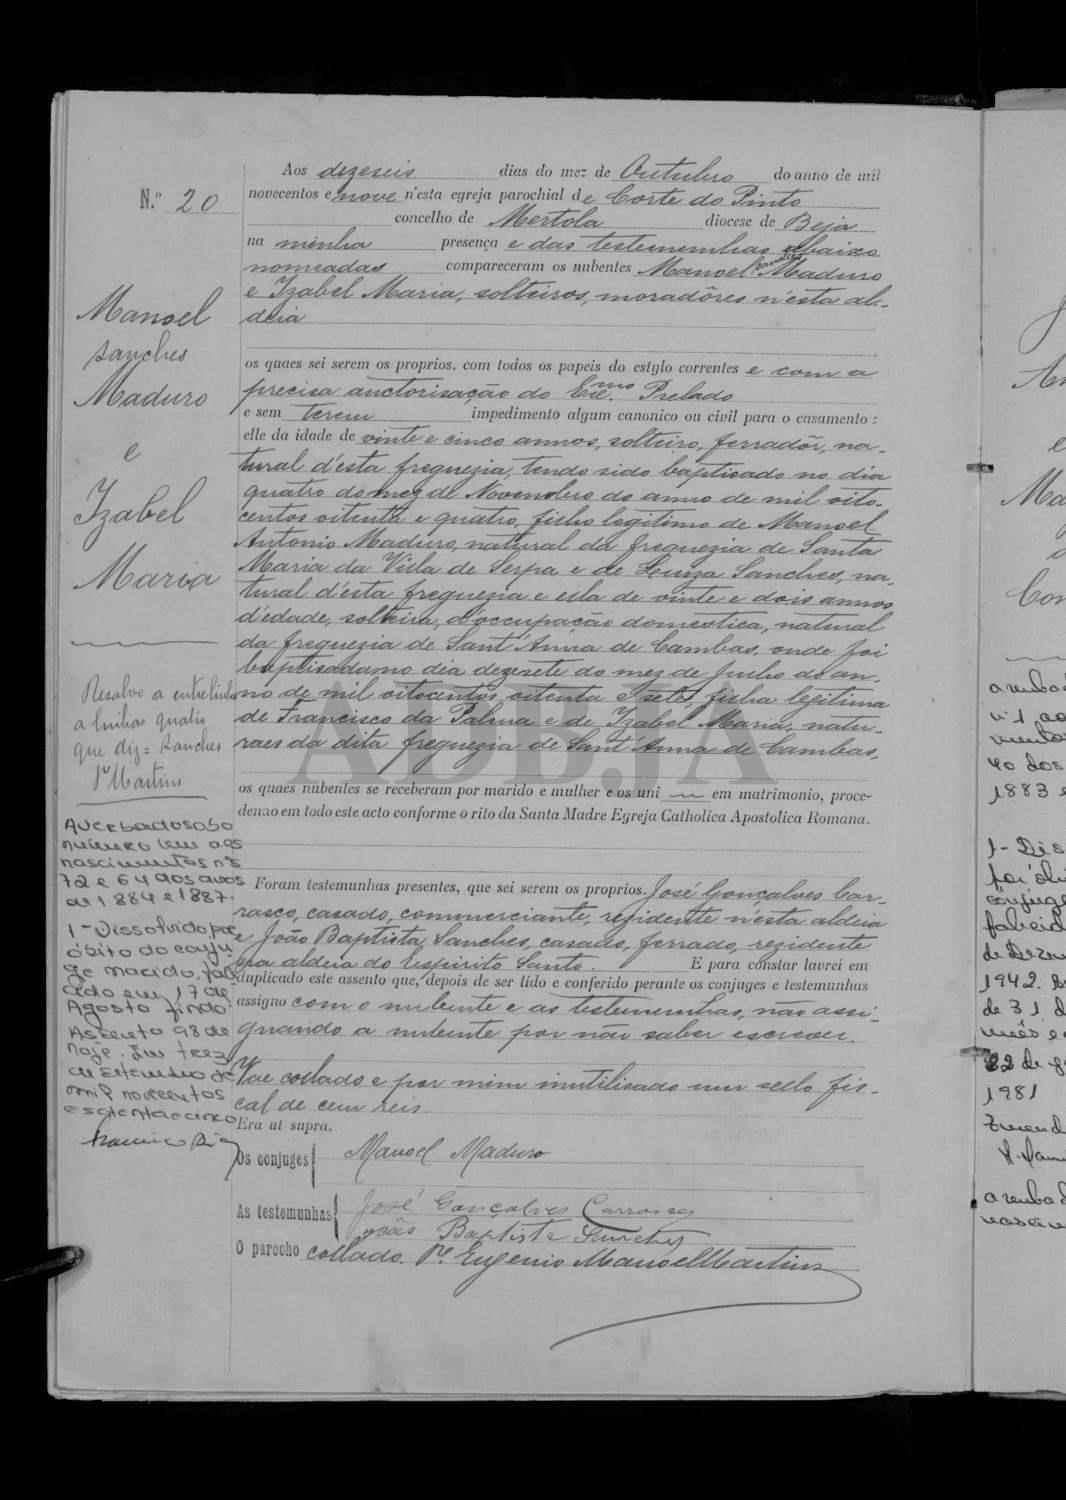 N.º 20
Manoel
Sanches
Maduro
e
Izabel
Maria
Resalvo a entrelinha
a linhas quatro
que diz= Sanches
P.e Martins
Averbado sob o
numero um aos
nascimentos nºs
72 e 64 dos anos
de 1884 e 1887.
1-Dissolvido por
óbito do conju
ge marido, fale
cido em 17 de
Agosto findo.
Assento 98 de
hoje. Em trez
de Setembro de
mil novecentos
e setenta e cinco
Aos dezeseis dias do mez de Outubro do anno de mil
novecentos e nove n'esta egreja parochial de Corte do Pinto
concelho de Mertola diocese de Beja
na minha presença e das testemunhas abaixo
nomeadas compareceram os nubentes Manoel Sanches Maduro
e Izabel Maria, solteiros, moradôres n'esta al-
deia
os quaes sei serem os proprios, com todos os papeis do estylo correntes e com a
precisa auctorisação do Exmo. Prelado
e sem terem impedimento algum canonico ou civil para o casamento:
elle da idade de vinte e cinco annos, solteiro, ferradôr, na-
tural d'esta freguezia, tendo sido baptisado no dia
quatro do mez de Novembro do anno de mil oito-
centos oitenta e quatro, filho legitimo de Manoel
Antonio Maduro, natural da freguezia de Santa
Maria da Villa de Serpa e de Luiza Sanches, na-
tural d'esta freguezia e ella de vinte e dois annos
d'edade, solteira, d'occupação domestica, natural
da freguezia de Sant'Anna de Cambas, onde foi
baptisada no dia dezesete do mez de Junho do an-
no de mil oitocentos oitenta e sete, filha legitima
de Francisco da Palma e de Izabel Maria, natu-
raes da dita freguezia de Sant'Anna de Cambas,
os quaes nubentes se receberam por marido e mulher e os uni em matrimonio, proce-
dendo em todo este acto conforme o rito da Santa Madre Egreja Catholica Apostolica Romana.
Foram testemunhas presentes, que sei serem os proprios. José Gonçalves Car-
rasco, casado, commerciante, rezidente n'esta aldeia
e João Baptista Sanches, casado, ferrado, rezidente
na aldeia do Espirito Santo. E para constar lavrei em
duplicado este assento que, depois de ser lido e conferido perante os conjuges e testemunhas
assigno com o nubente e as testemunhas, não assi-
gnando a nubente por não saber escrever.
Vae collado e por mim inutilisado um sello fis-
cal de cem reis.
Era ut supra.
Os conjuges Manoel Maduro
As testemunhas José Gonçalves Carrasco
João Baptista Sanches
O parocho collado. P.e Eugenio Manoel Martins
ADBJA
1883 e
conjuge
1942.
de 31 d
22 de
1981